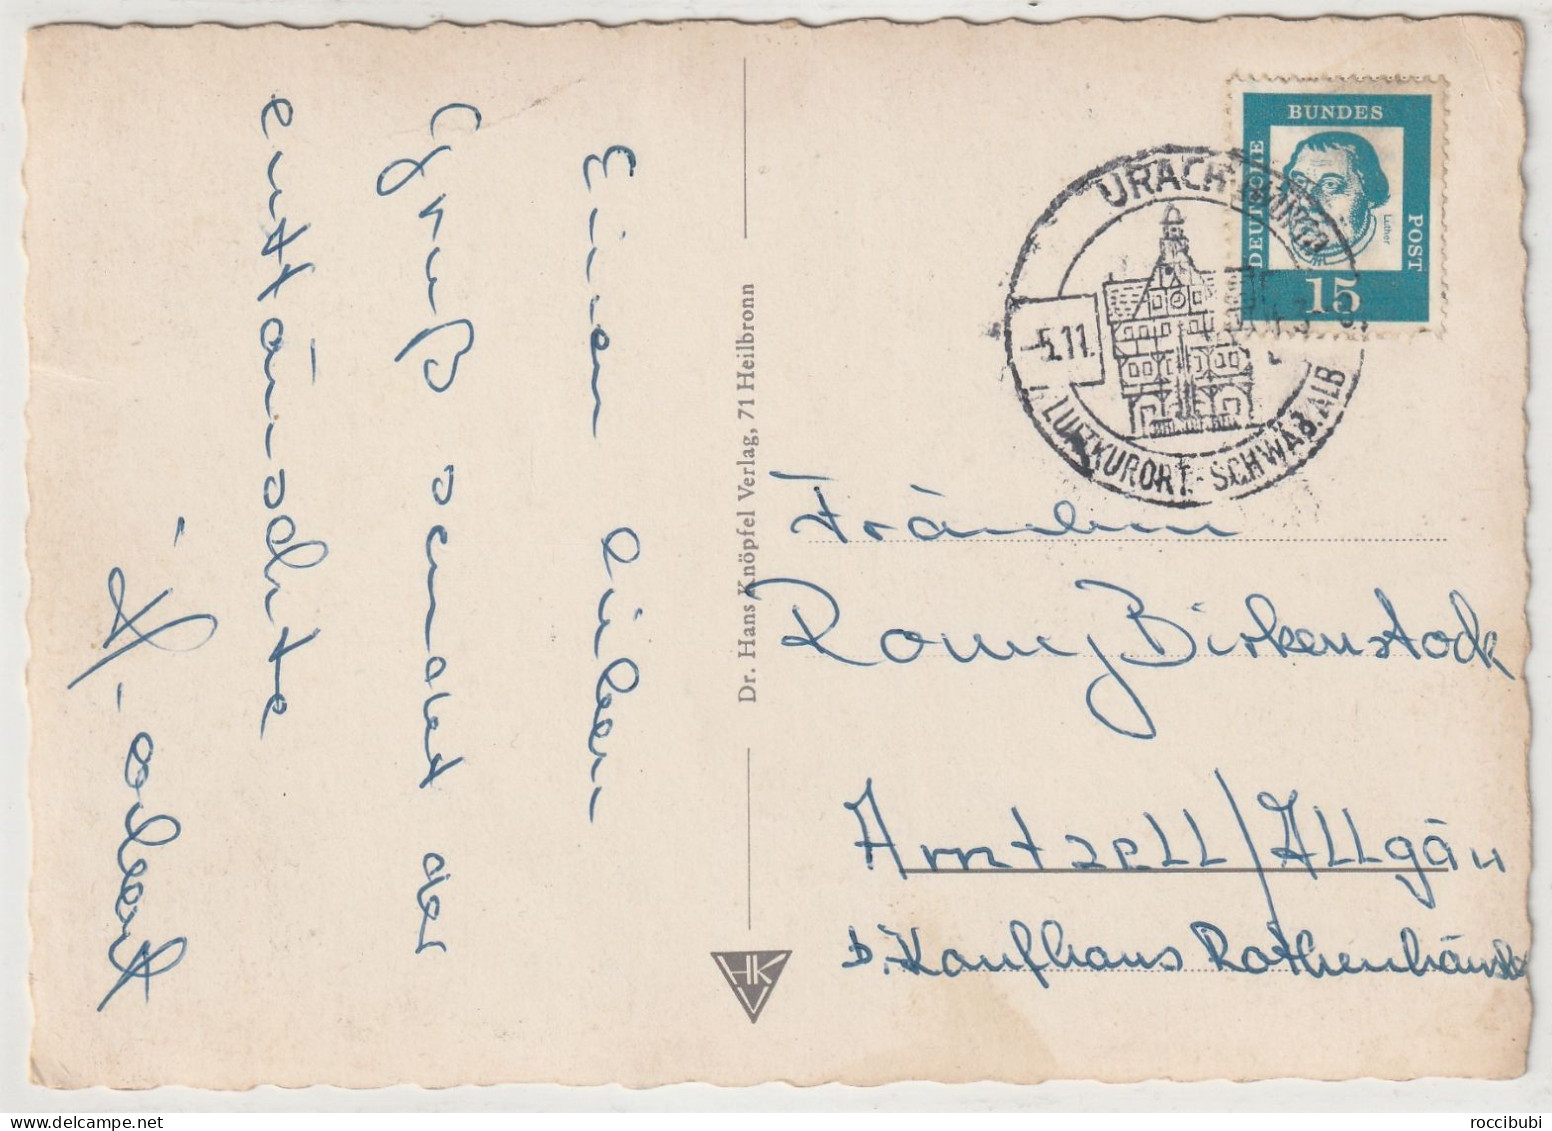 Einen lieben
Gruß sendet der
enttäuschte
H. Norbert
Dr. Hans Knöpfel Verlag, 71 Heilbronn
HKV
DEUTSCHE BUNDES POST
Luther
15
URACH
5.11.
LUFTKURORT - SCHWÄB. ALB
Fräulein
Romy Birkenstock
Amtzell/Allgäu
b. Kaufhaus Rothenhäusler
roccibubi